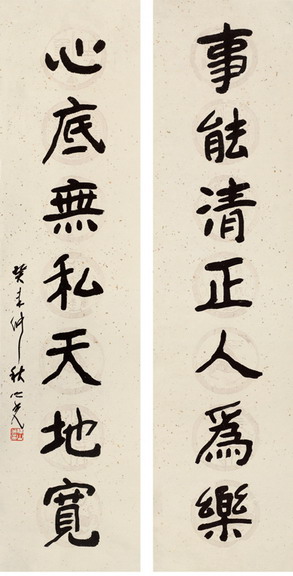 事能清正人為樂
心底無私天地寬
癸未仲秋